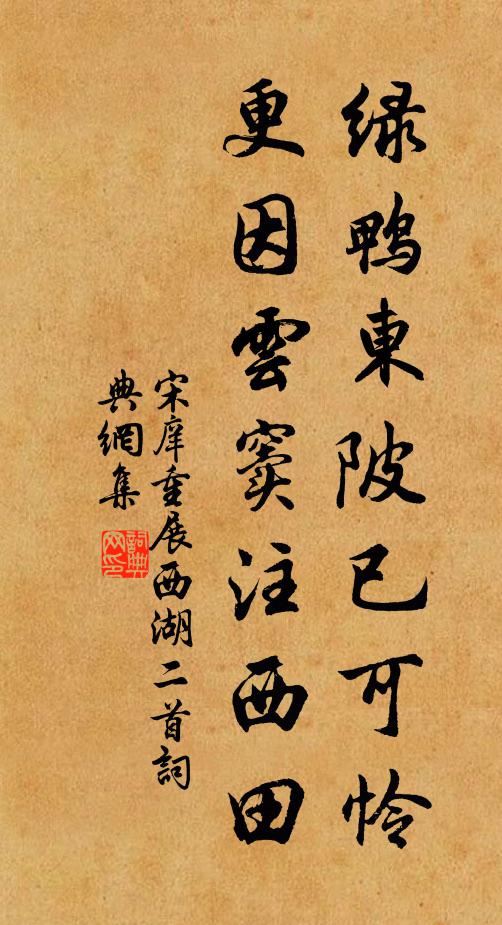 绿鸭東陂已可怜
更因雲窦注西田
宋庠重展西湖二首詞
典網集
詞典网印